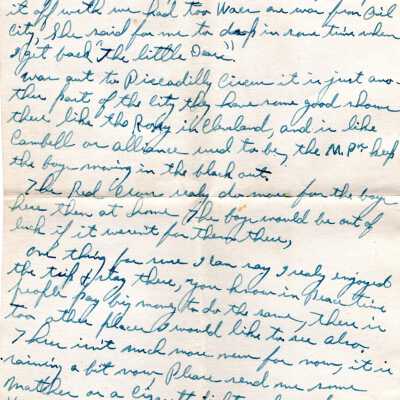 it off with me had too Wacs are was from Oil
City, She said for me to drop in some time when
I get back "The little Dear".
Was out to Piccadilly Circus it is just ano-
ther part of the city they have some good shows
there like the Roxy in Cleveland, and is like
Cambell or alliance used to be, the M.P.s keep
the boys moving in the black out.
The Red Cross realy do more for the boys
here then at home The boys would be out of
luck if it weren't for them there,
One thing for sure I can say I realy enjoyed
the trip & stay there, you know in peace time
people pay big money to do the same, There is
too other places I would like to see also.
There isn't much more news for now, it is
raining a bit now Please send me some
Matches or a Cigarett lighter